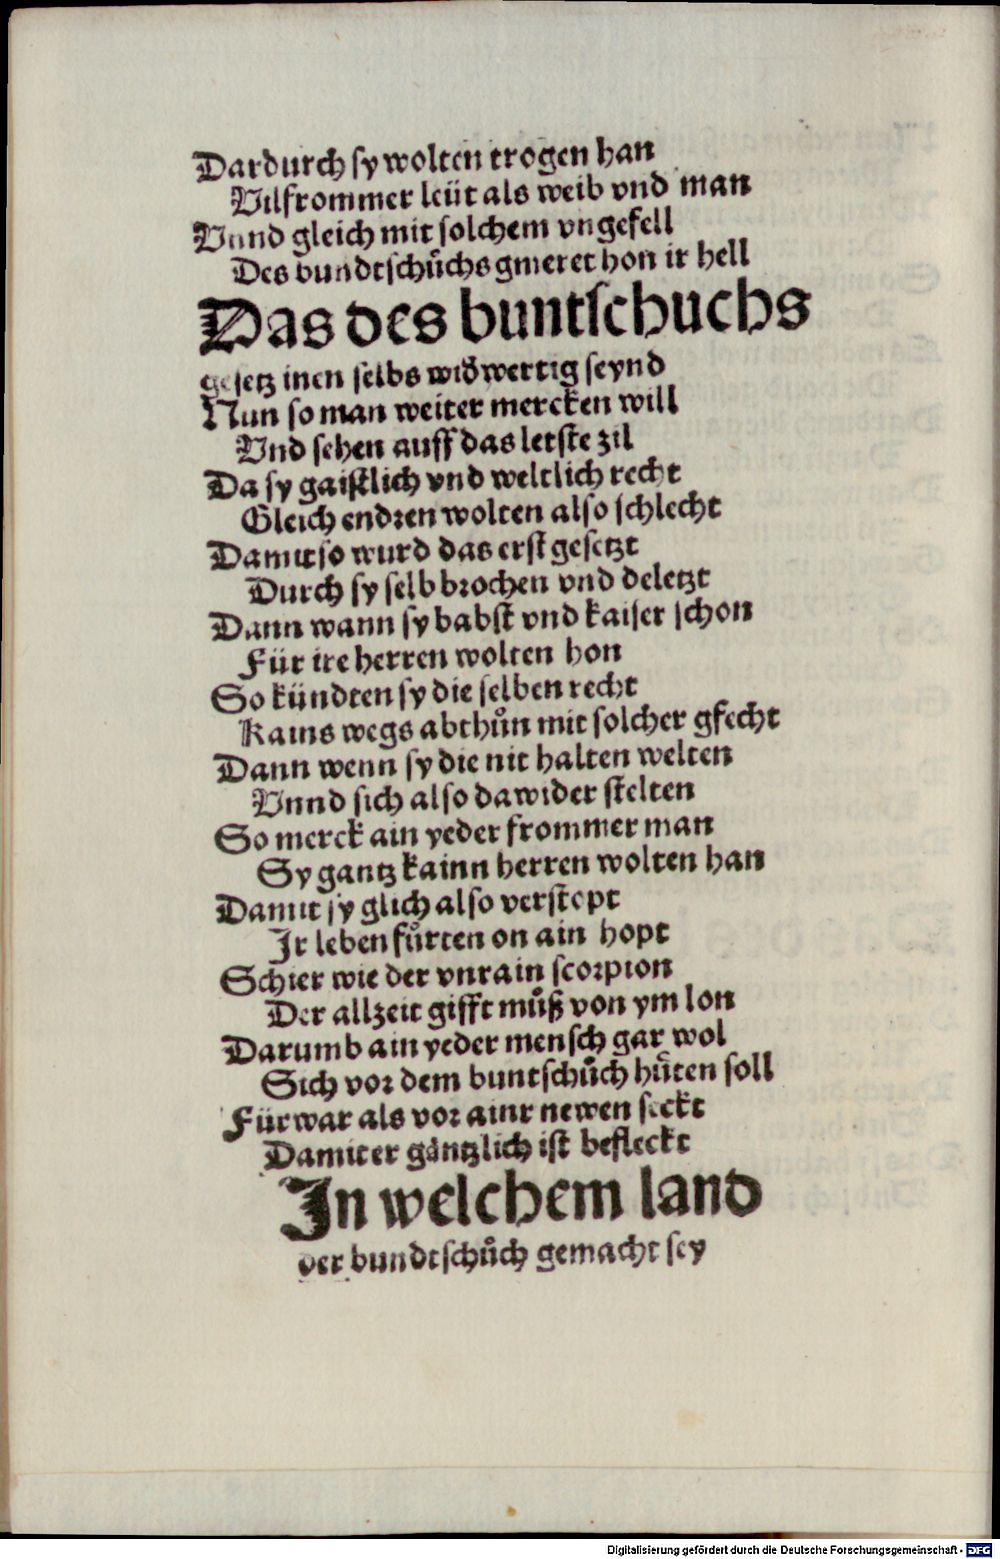 Dardurch sy wolten trogen han
Vilfrommer leüt als weib vnd man
Vnnd gleich mit solchem vngefell
Des bundtschůchs gmeret hon ir hell
Das des buntschuchs
gesetz inen selbs widwertig seynd
Nun so man weiter mercken will
Vnd sehen auff das letste zil
Da sy gaistlich vnd weltlich recht
Gleich endren wolten also schlecht
Damit so wurd das erst gesetzt
Durch sy selb brochen vnd deletzt
Dann wann sy babst vnd kaiser schon
Für ire herren wolten hon
So kündten sy die selben recht
Kains wegs abthůn mit solcher gfecht
Dann wenn sy die nit halten welten
Vnnd sich also dawider stelten
So merck ain yeder frommer man
Sy gantz kainn herren wolten han
Damit sy glich also verstopt
Ir leben fůrten on ain hopt
Schier wie der vnrain scorpion
Der allzeit gifft můß von ym lon
Darumb ain yeder mensch gar wol
Sich vor dem buntschůch hůten soll
Fürwar als vor ainr newen seckt
Damit er gäntzlich ist befleckt
In welchem land
der bundtschůch gemacht sey
Digitalisierung gefördert durch die Deutsche Forschungsgemeinschaft - DFG